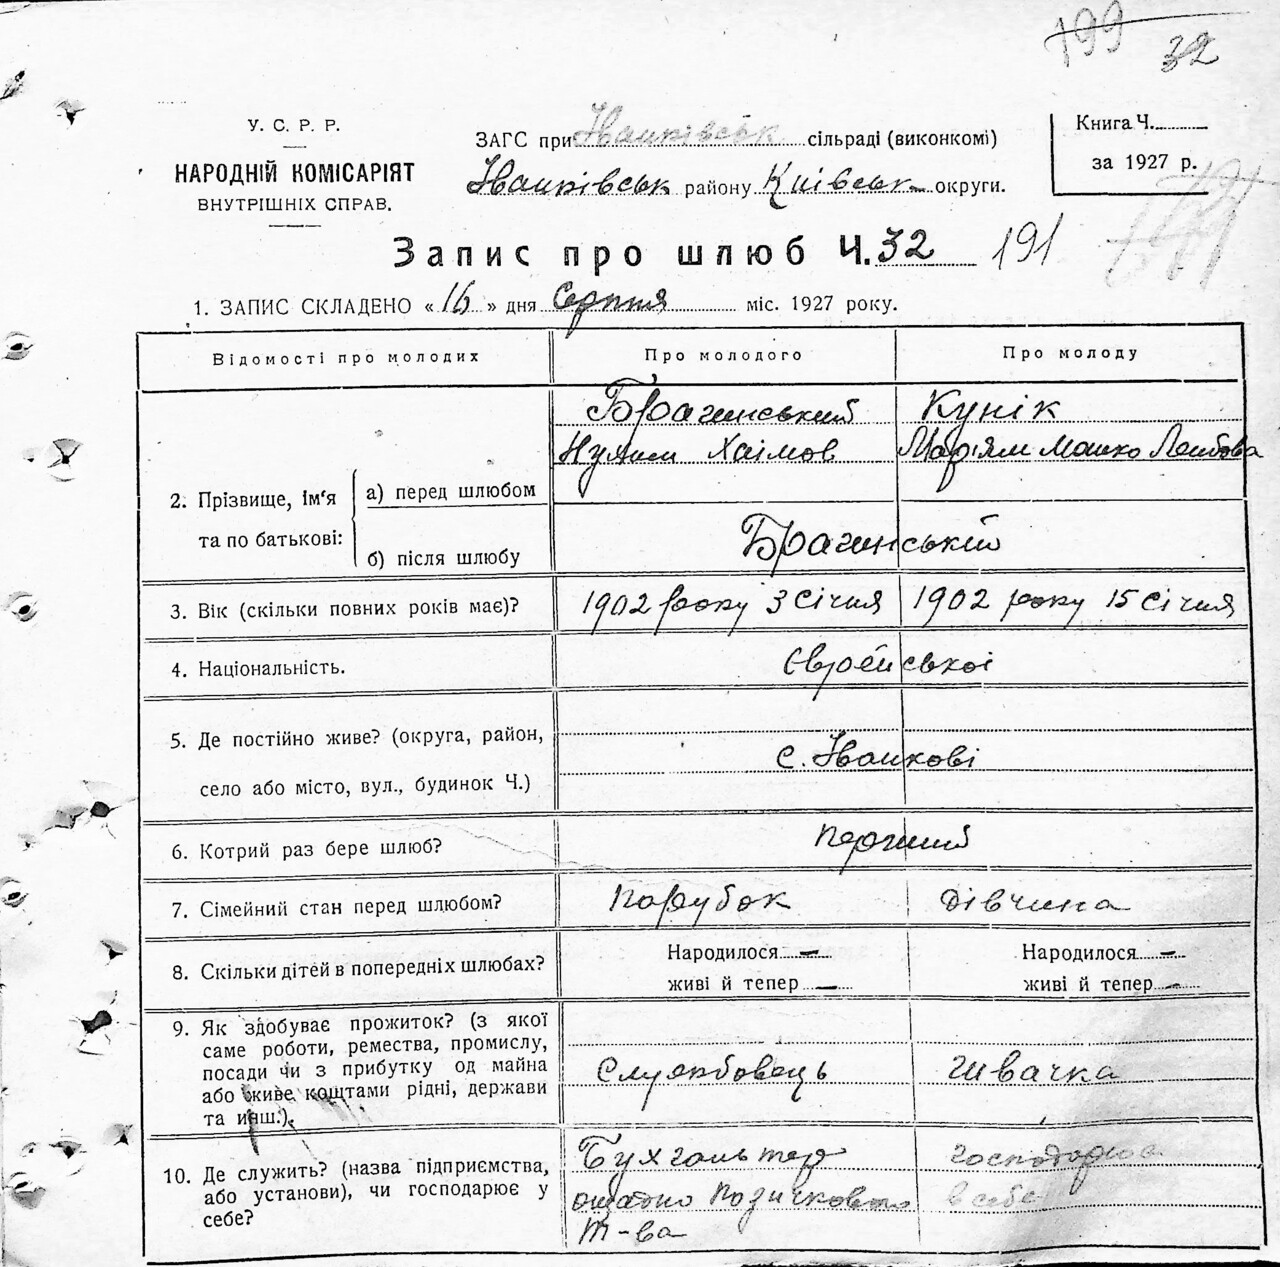 199
32
У. С. Р. Р.
НАРОДНІЙ КОМІСАРІЯТ
ВНУТРІШНІХ СПРАВ.
ЗАГС при Іванківськ сільраді (виконкомі)
Іванківськ району Київськ округи.
Книга Ч.
за 1927 р.
Запис про шлюб Ч. 32 191
1. ЗАПИС СКЛАДЕНО « 16 » дня Серпня міс. 1927 року.
Відомості про молодих
Про молодого
Про молоду
Брагинський
Кунік
Нухим Хаімов
Мар'ям Лейбова
2. Прізвище, ім'я та по батькові:
а) перед шлюбом
б) після шлюбу
Брагинський
3. Вік (скільки повних років має)?
1902 року 3 Січня
1902 року 15 Січня
4. Національність.
Єврейської
5. Де постійно живе? (округа, район,
село або місто, вул., будинок Ч.)
с. Іванкові
6. Котрий раз бере шлюб?
Перший
7. Сімейний стан перед шлюбом?
Парубок
Дівчина
8. Скільки дітей в попередніх шлюбах?
Народилося —
живі й тепер —
Народилося —
живі й тепер —
9. Як здобуває прожиток? (з якої
саме роботи, ремества, промислу,
посади чи з прибутку од майна
або живе коштами рідні, держави
та инш.).
Службовець
Швачка
10. Де служить? (назва підприємства,
або установи), чи господарює у
себе?
Бухгальтер
ощадно Позичкового
Т-ва
господарює
в себе